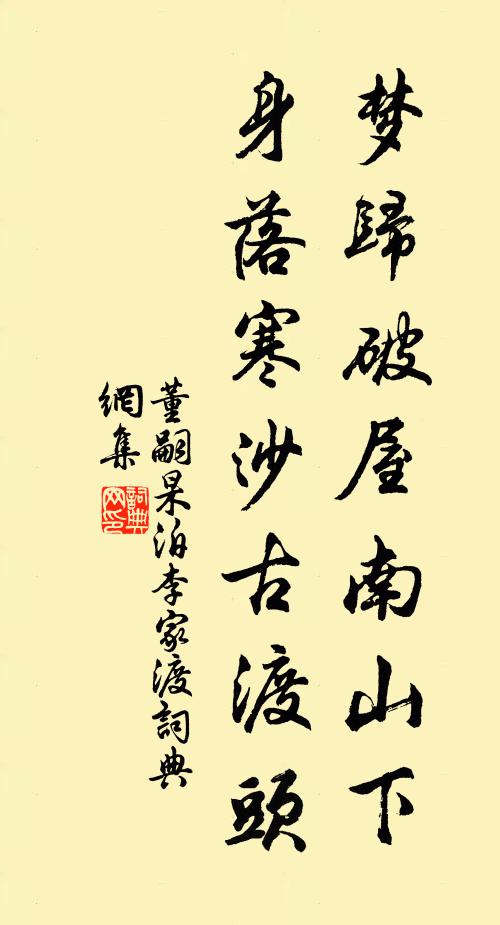 梦歸破屋南山下
身落寒沙古渡頭
董嗣杲泊李家渡詞典
網集
詞典網印